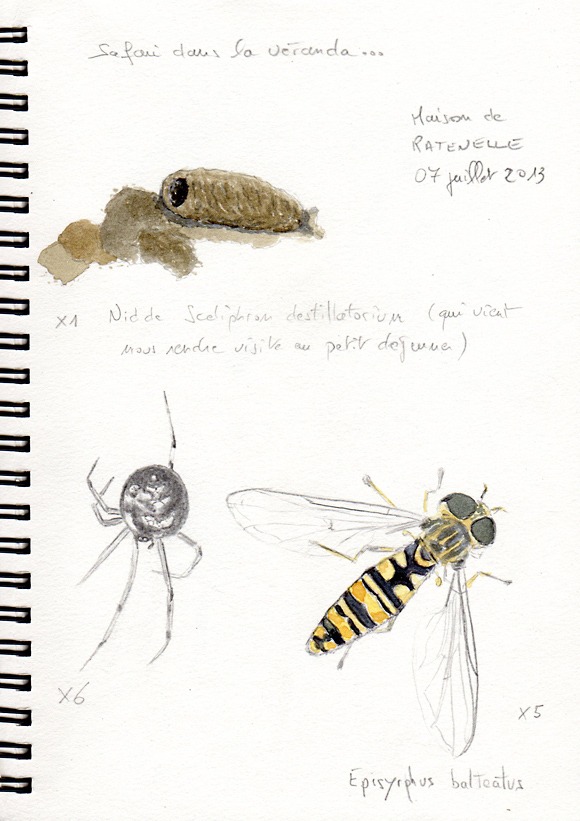 Safari dans la véranda...
Maison de
RATENELLE
07 juillet 2013
x1 Nid de Sceliphron destillatorium (qui vient
nous rendre visite au petit déjeuner)
x6
x5
Episyrphus balteatus